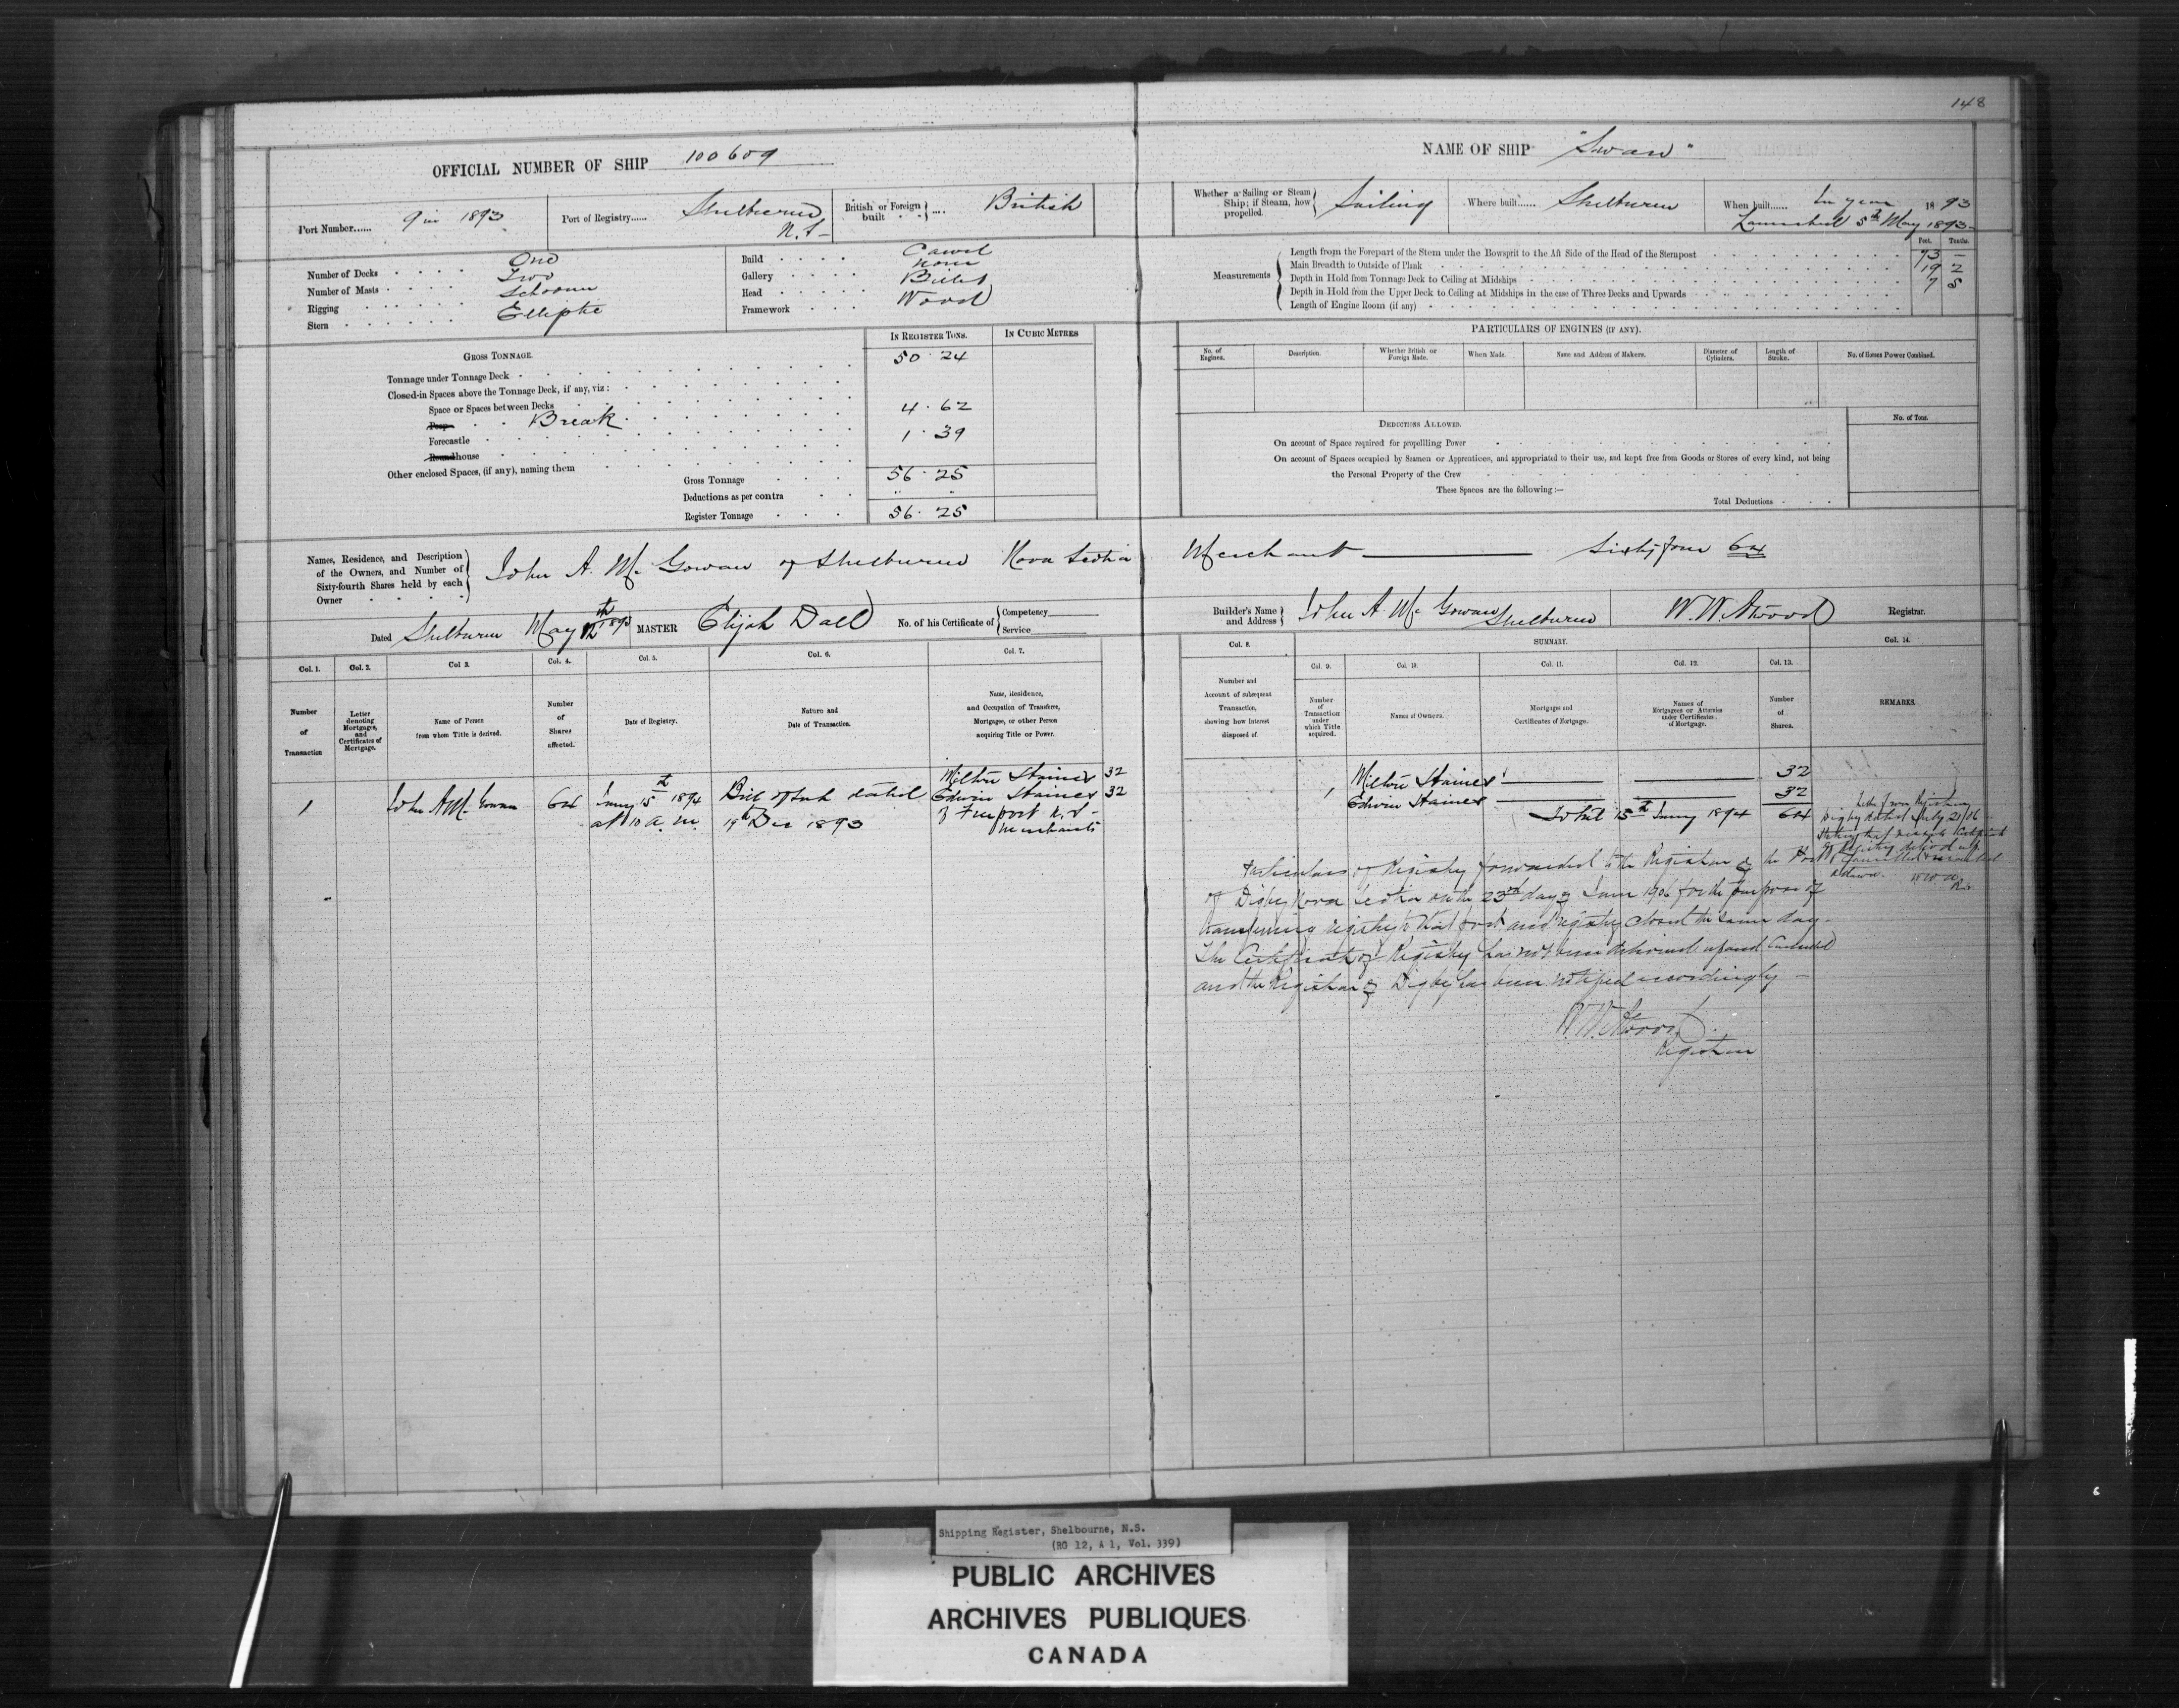 148
OFFICIAL NUMBER OF SHIP 100609
NAME OF SHIP "Swan"
Port Number...... 9 in 1893
Port of Registry...... Shelburne N.S-
British or Foreign built .... British
Whether a Sailing or Steam Ship; if Steam, how propelled. Sailing
Where built...... Shelburne
When built...... In year 1893
Launched 5th May 1893-
Number of Decks One
Number of Masts Two
Rigging Schooner
Stern Elliptic
Build Carvel
Gallery None
Head Billet
Framework Wood
Measurements
Feet. Tenths.
Length from the Forepart of the Stem under the Bowsprit to the Aft Side of the Head of the Sternpost 73 -
Main Breadth to Outside of Plank 19 2
Depth in Hold from Tonnage Deck to Ceiling at Midships 7 5
Depth in Hold from the Upper Deck to Ceiling at Midships in the case of Three Decks and Upwards
Length of Engine Room (if any)
GROSS TONNAGE.
IN REGISTER TONS.
IN CUBIC METRES
Tonnage under Tonnage Deck 50.24
Closed-in Spaces above the Tonnage Deck, if any, viz:
Space or Spaces between Decks
Poop Break 4.62
Forecastle
Roundhouse 1.39
Other enclosed Spaces, (if any), naming them
Gross Tonnage 56.25
Deductions as per contra " "
Register Tonnage 56.25
PARTICULARS OF ENGINES (IF ANY).
No. of Engines.
Description.
Whether British or Foreign Made.
When Made.
Name and Address of Makers.
Diameter of Cylinders.
Length of Stroke.
No. of Horses Power Combined.
DEDUCTIONS ALLOWED.
No. of Tons.
On account of Space required for propelling Power
On account of Spaces occupied by Seamen or Apprentices, and appropriated to their use, and kept free from Goods or Stores of every kind, not being
the Personal Property of the Crew
These Spaces are the following:—
Total Deductions
Names, Residence, and Description of the Owners, and Number of Sixty-fourth Shares held by each Owner
John A. Mc Gowan of Shelburne Nova Scotia Merchant Sixty four 64
Dated Shelburne May 12th 1893
MASTER Elijah Dall
No. of his Certificate of Competency Service
Builder's Name and Address John A. Mc Gowan Shelburne
W. W. Atwood Registrar.
Col. 1. Col. 2. Col 3. Col. 4. Col. 5. Col. 6. Col. 7.
Number of Transaction
Letter denoting Mortgages, and Certificates of Mortgage.
Name of Person from whom Title is derived.
Number of Shares affected.
Date of Registry.
Nature and Date of Transaction.
Name, Residence, and Occupation of Transferee, Mortgagee, or other Person acquiring Title or Power.
Col. 8. SUMMARY. Col. 14.
Col. 9. Col. 10. Col. 11. Col. 12. Col. 13.
Number and Account of subsequent Transaction, showing how Interest disposed of.
Number of Transaction under which Title acquired.
Names of Owners.
Mortgages and Certificates of Mortgage.
Names of Mortgagees or Attornies under Certificates of Mortgage.
Number of Shares.
REMARKS.
1 John A Mc Gowan 64
Jany 15th 1894 at 10 a.m.
Bill of Sale dated 19th Dec 1893
Milton Haines 32
Edwin Haines 32
of Freeport N.S - Merchants
1 Milton Haines 32
Edwin Haines 32
Total 15th Jany 1894 64
Letter from Registrar
Digby dated July 21/06
stating that Certificate
of Registry delivd up
Cancelled
W.W.A.
Rr.
Particulars of Registry forwarded to the Registrar of the Port
of Digby Nova Scotia on the 23rd day of June 1906 for the purpose of
transferring registry to that port and registry closed the same day.
The Certificate of Registry has not been delivered up and Cancelled
and the Registrar of Digby has been notified accordingly -
W. W. Atwood.
Registrar
Shipping Register, Shelbourne, N.S.
(RG 12, A 1, Vol. 339)
PUBLIC ARCHIVES
ARCHIVES PUBLIQUES
CANADA